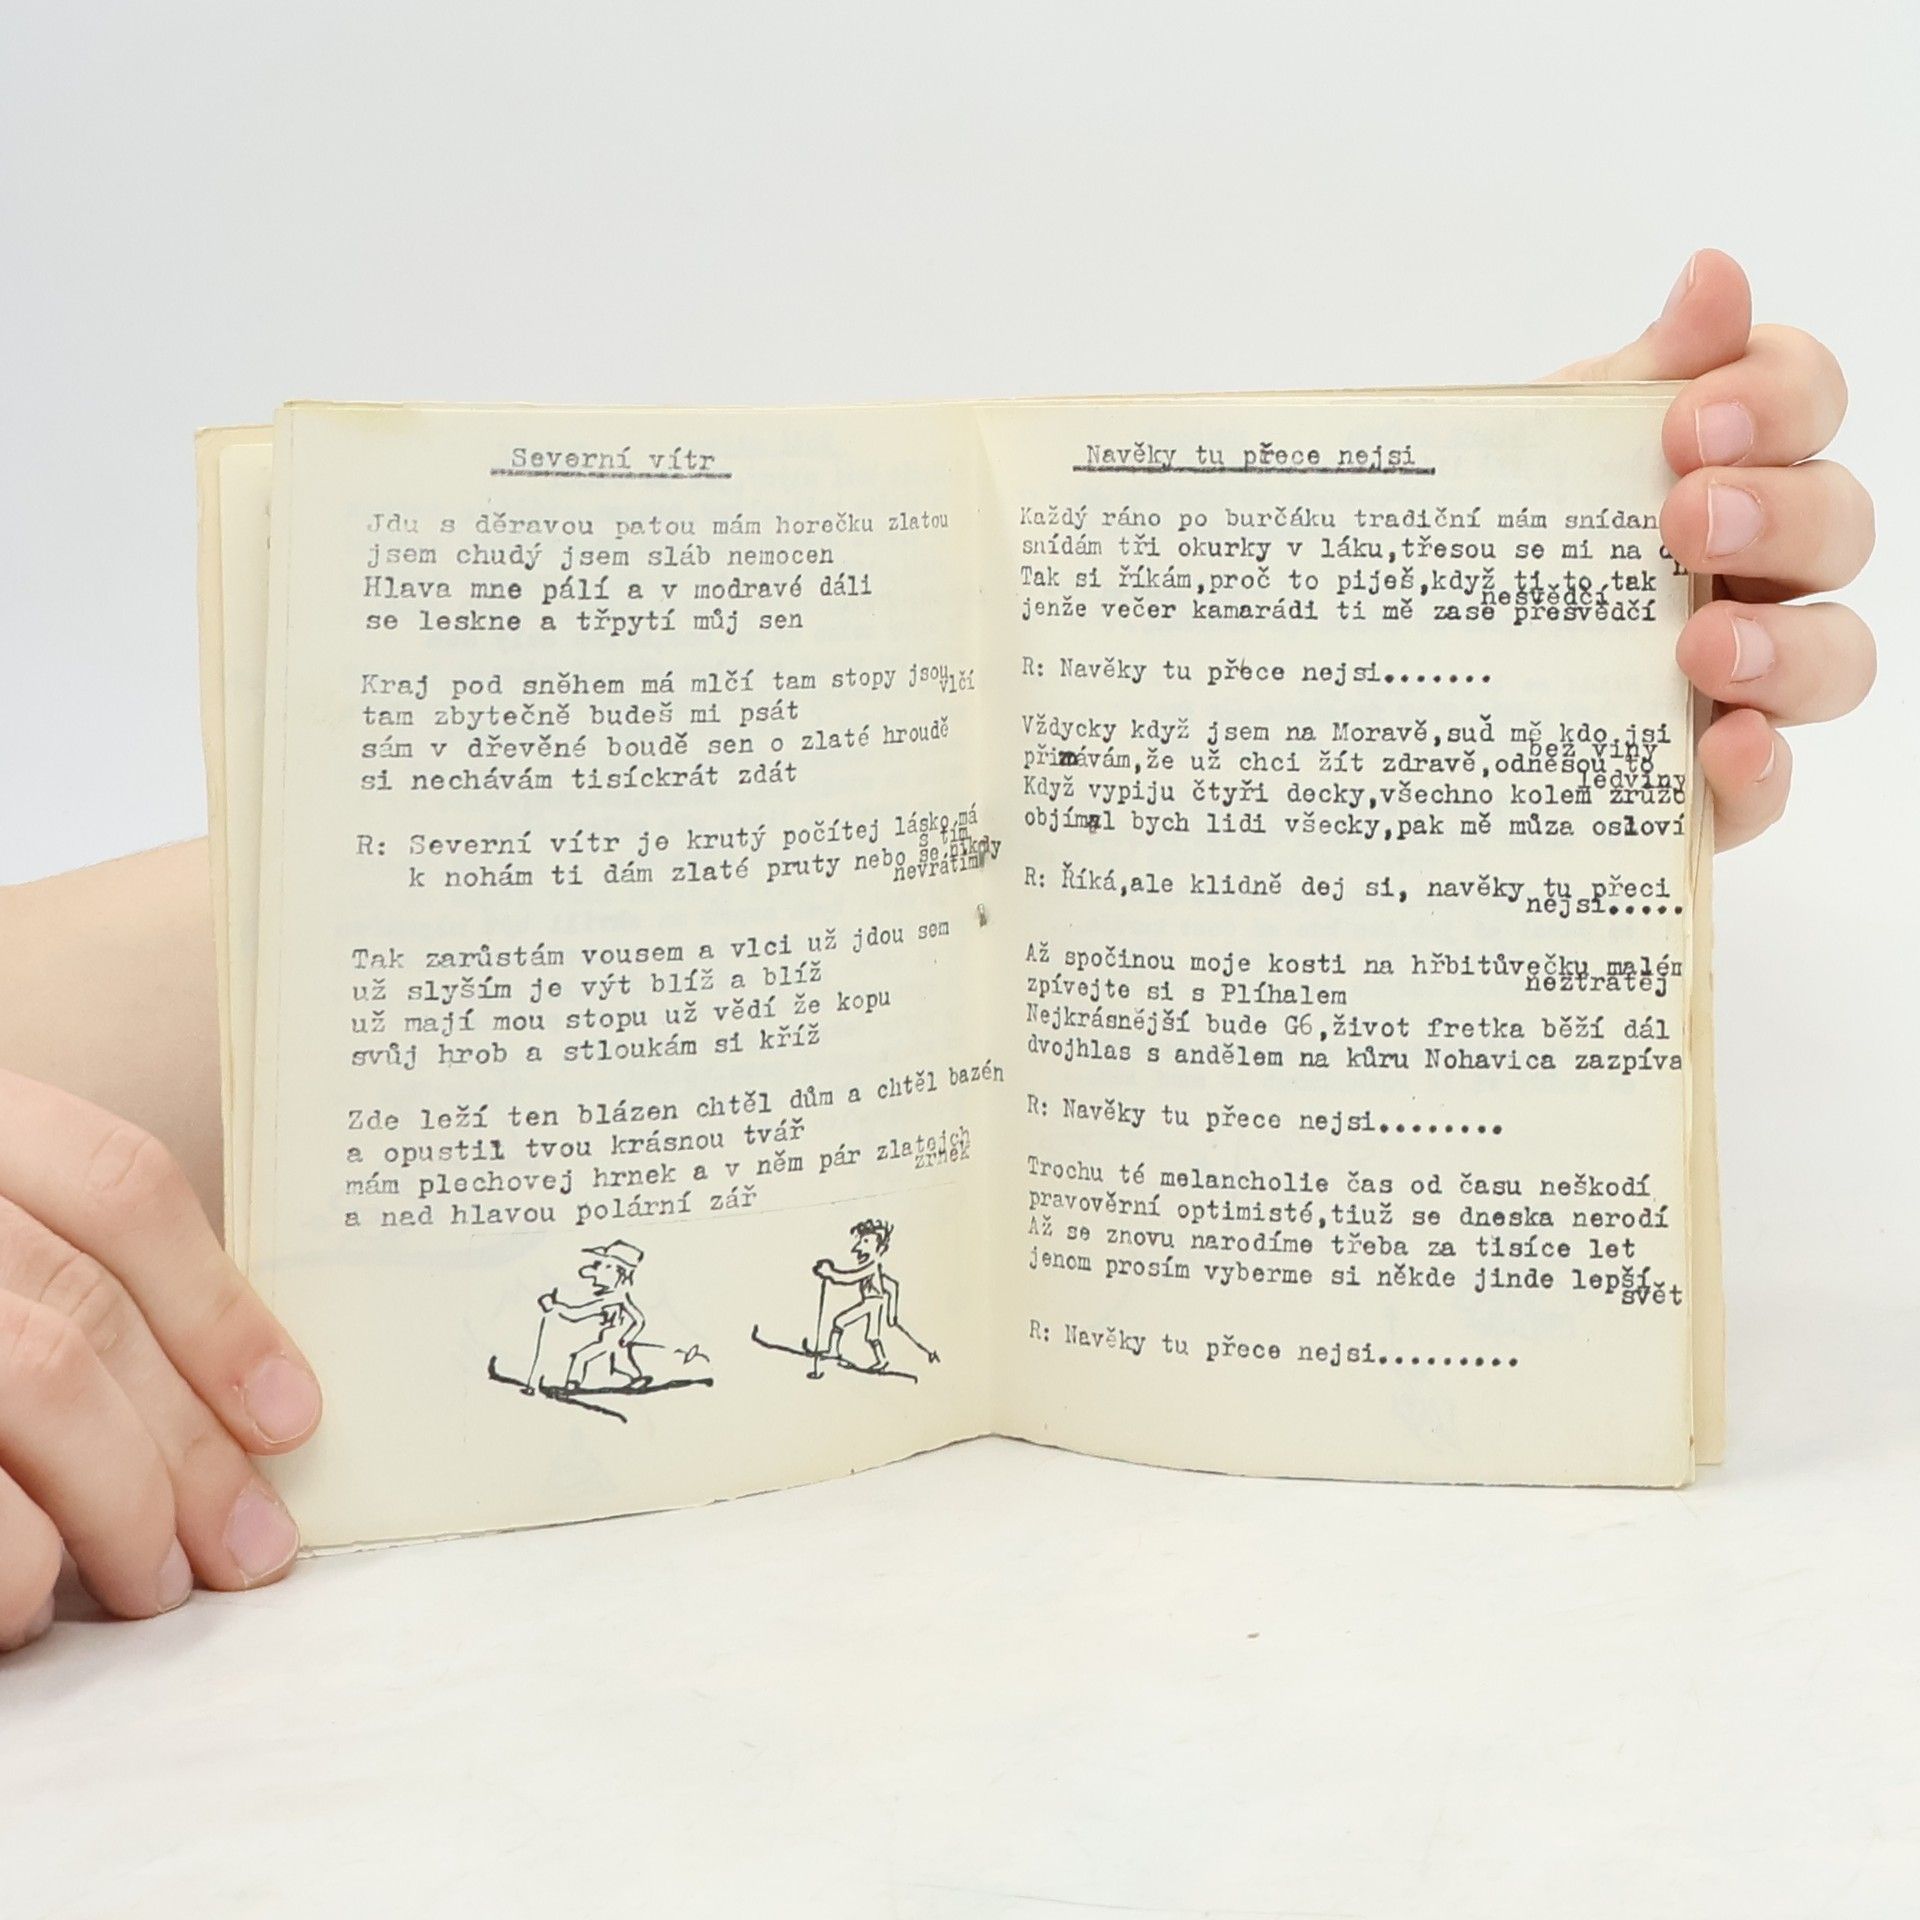 Severní vítr
Jdu s děravou patou mám horečku zlatou
jsem chudý jsem sláb nemocen
Hlava mne pálí a v modravé dáli
se leskne a třpytí můj sen
Kraj pod sněhem má mlčí tam stopy jsou
vlčí
tam zbytečně budeš mi psát
sám v dřevěné boudě sen o zlaté hroudě
si nechávám tisíckrát zdát
R: Severní vítr je krutý počítej lásko má
s tím
k nohám ti dám zlaté pruty nebo se nikdy
nevrátím
Tak zarůstám vousem a vlci už jdou sem
už slyším je výt blíž a blíž
už mají mou stopu už vědí že kopu
svůj hrob a stloukám si kříž
Zde leží ten blázen chtěl dům a chtěl bazén
a opustil tvou krásnou tvář
mám plechovej hrnek a v něm pár zlatejch
zrnek
a nad hlavou polární zář
Navěky tu přece nejsi
Každý ráno po burčáku tradiční mám snídan
snídám tři okurky v láku,třesou se mi na
Tak si říkám,proč to piješ,když ti to tak
nesvědčí
jenže večer kamarádi ti mě zase přesvědčí
R: Navěky tu přece nejsi.......
Vždycky když jsem na Moravě,suď mě kdo jsi
bez viny
přiznávám,že už chci žít zdravě,odnesou to
ledviny
Když vypiju čtyři decky,všechno kolem zrůžo
objímal bych lidi všecky,pak mě můza osloví
R: Říká,ale klidně dej si, navěky tu přeci
nejsi.....
Až spočinou moje kosti na hřbitůvečku malém
neztratej
zpívejte si s Plíhalem
Nejkrásnější bude G6,život fretka běží dál
dvojhlas s andělem na kůru Nohavica zazpíva
R: Navěky tu přece nejsi........
Trochu té melancholie čas od času neškodí
pravověrní optimisté,tiuž se dneska nerodí
Až se znovu narodíme třeba za tisíce let
jenom prosím vyberme si někde jinde lepší
svět
R: Navěky tu přece nejsi.........